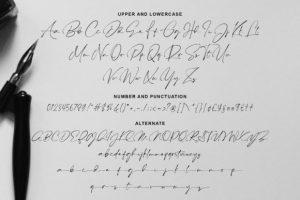 UPPER AND LOWERCASE
Aa Bb Cc Dd Ee Ff Gg Hh Ii Jj Kk Ll
Mm Nn Oo Pp Qq Rr Ss Tt Uu
Vv Ww Xx Yy Zz
NUMBER AND PUNCTUATION
ALTERNATE
ABCDEFGHIJKLMNOPQRSTUVWXYZ
abcdefghijklmnopqrstuvwxyz
a b c d e f g h i j k l m n o p
q r s t u v w x y z